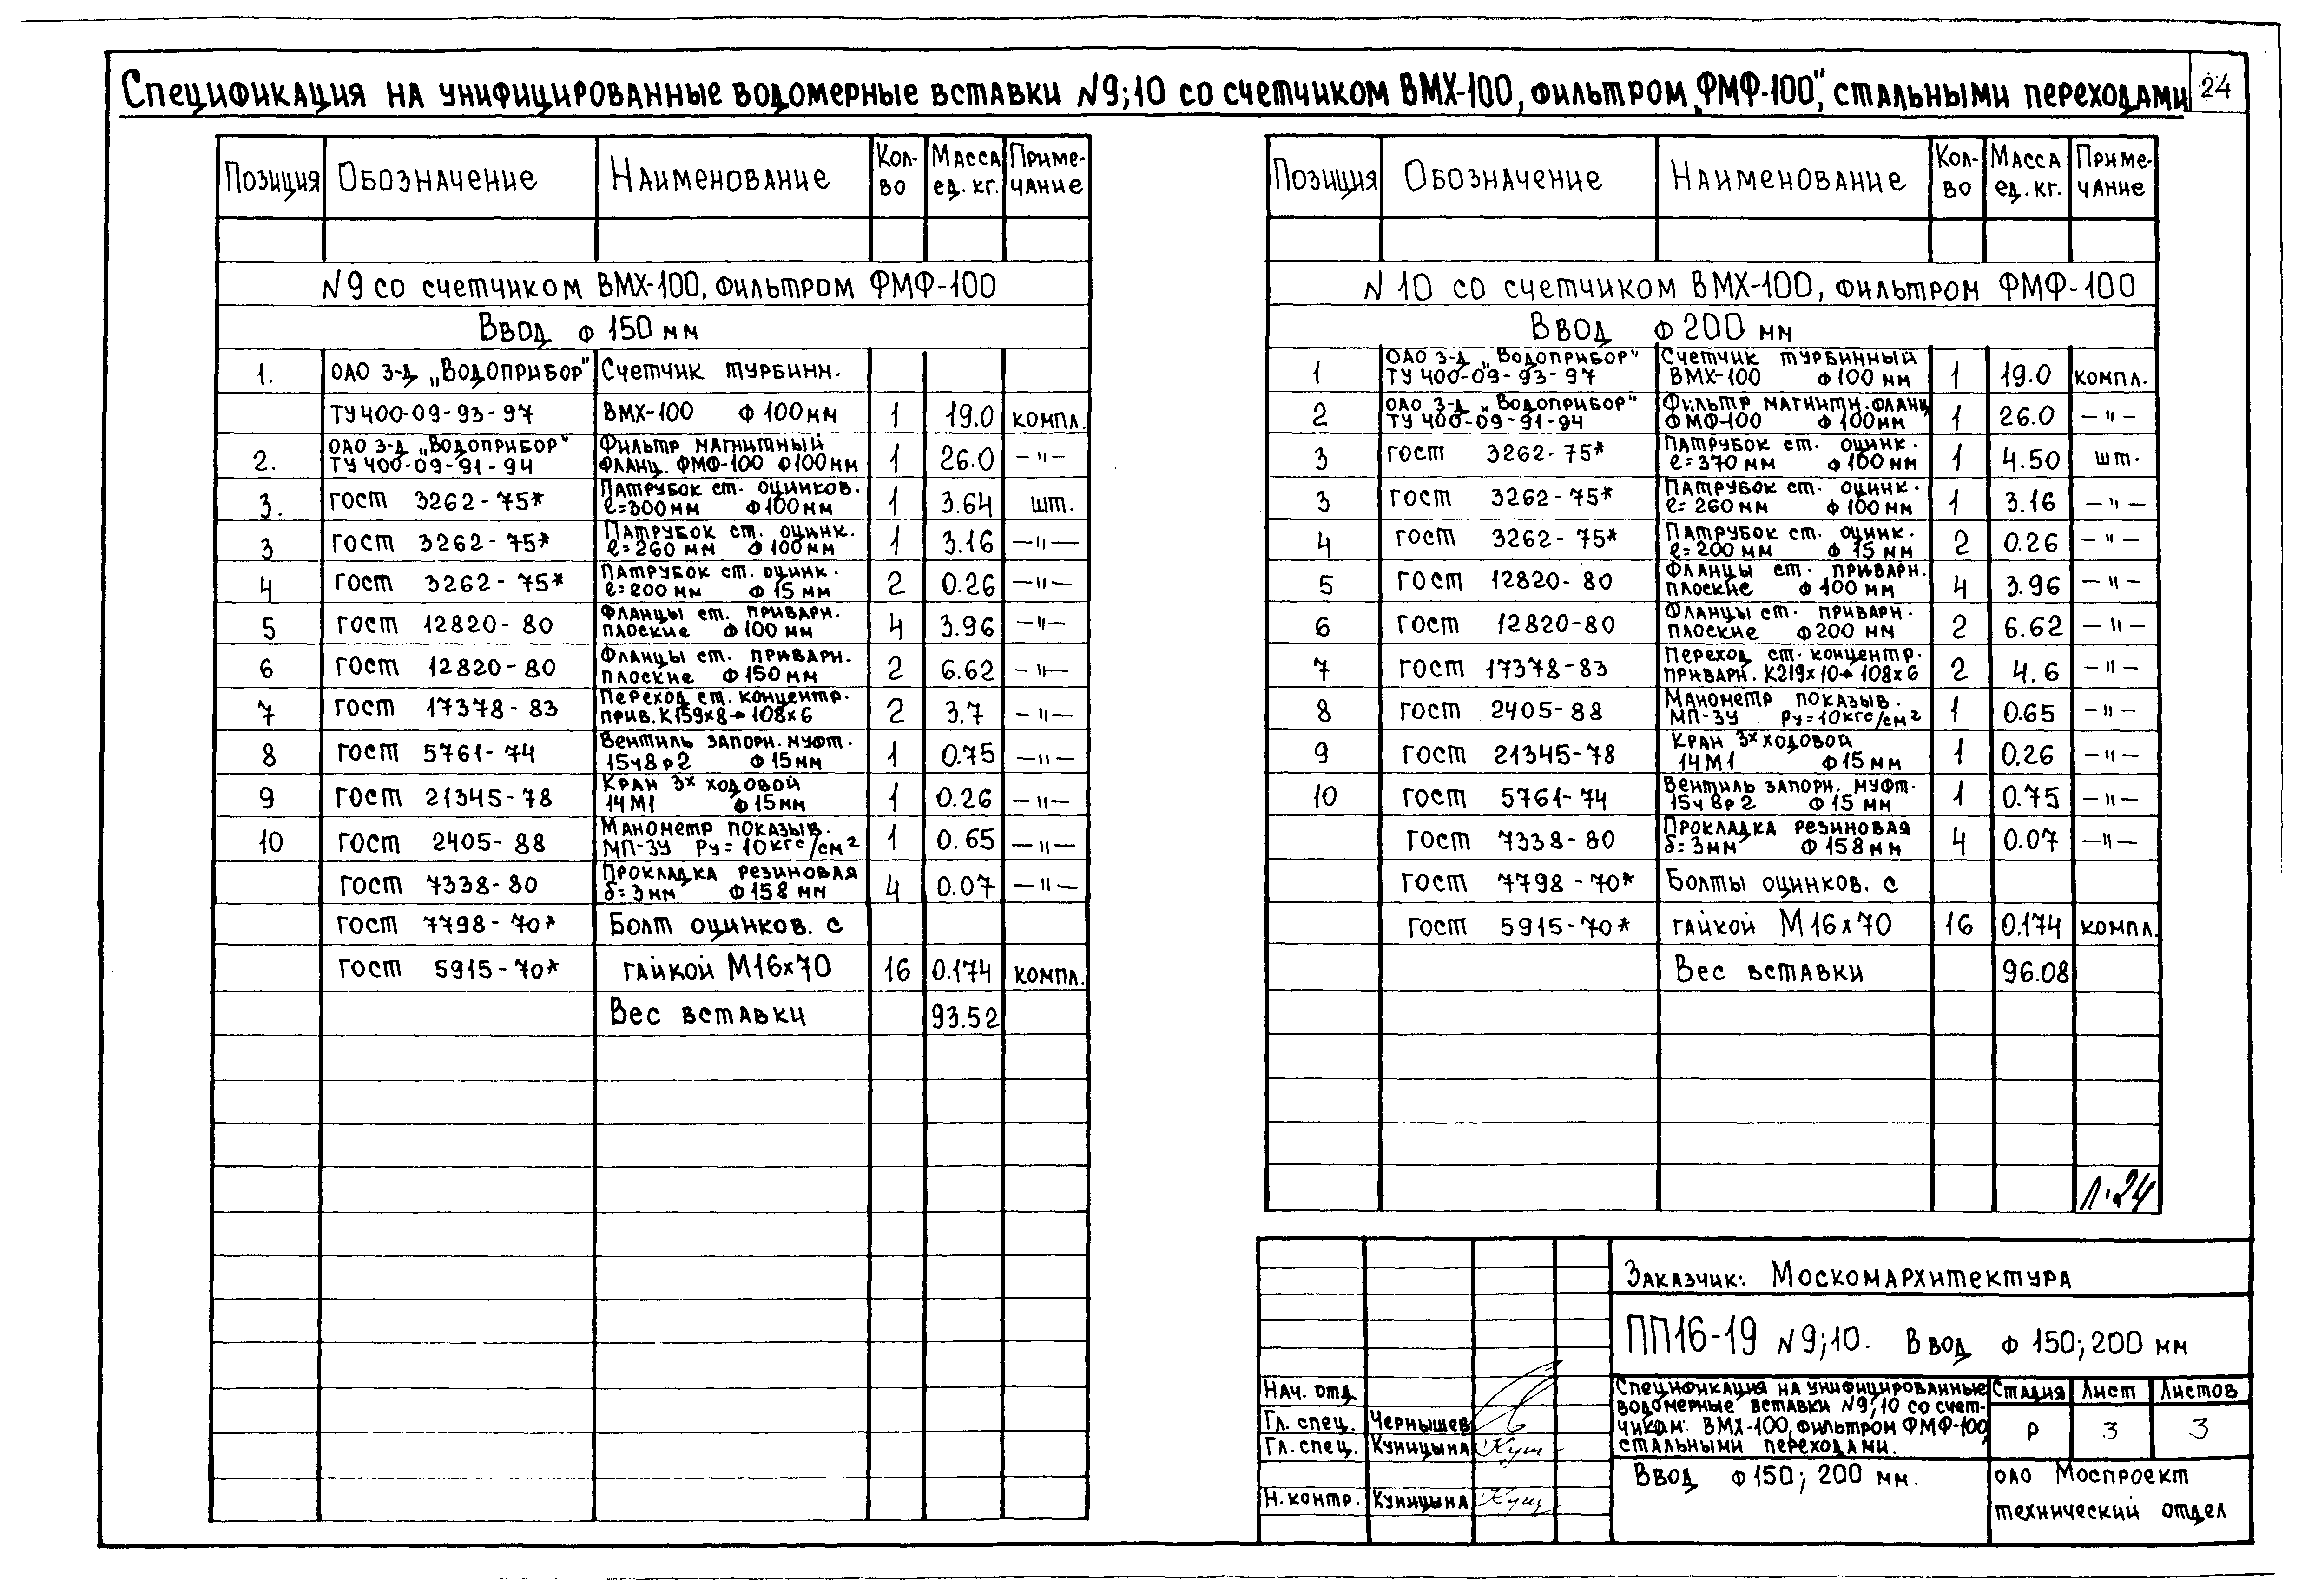 Спецификация на унифицированные водомерные вставки N9;10 со счетчиком ВМХ-100, фильтром „ФМФ-100", стальными переходами
24
Позиция Обозначение Наименование Кол-во Масса ед. кг. Примечание
N9 со счетчиком ВМХ-100, фильтром ФМФ-100
Ввод ф 150 мм
1. ОАО З-д „Водоприбор" Счетчик турбинн.
ТУ 400-09-93-97 ВМХ-100 Ф 100 мм 1 19.0 компл.
2. ОАО З-д „Водоприбор" ТУ 400-09-91-94 Фильтр магнитный фланц. ФМФ-100 Ф100мм 1 26.0 —"—
3. ГОСТ 3262-75* Патрубок ст. оцинков. ℓ=300мм Ф100мм 1 3.64 шт.
3 ГОСТ 3262-75* Патрубок ст. оцинк. ℓ=260 мм Ф 100 мм 1 3.16 —"—
4 ГОСТ 3262-75* Патрубок ст. оцинк. ℓ=200 мм Ф 15 мм 2 0.26 —"—
5 ГОСТ 12820-80 Фланцы ст. приварн. плоские Ф 100 мм 4 3.96 —"—
6 ГОСТ 12820-80 Фланцы ст. приварн. плоские Ф 150 мм 2 6.62 —"—
7 ГОСТ 17378-83 Переход ст. концентр. прив. К159х8→108х6 2 3.7 —"—
8 ГОСТ 5761-74 Вентиль запорн. муфт. 15ч8р2 Ф 15мм 1 0.75 —"—
9 ГОСТ 21345-78 Кран 3х ходовой 14М1 Ф 15 мм 1 0.26 —"—
10 ГОСТ 2405-88 Манометр показыв. МП-3У Ру=10кгс/см² 1 0.65 —"—
ГОСТ 7338-80 Прокладка резиновая δ=3мм Ф 158 мм 4 0.07 —"—
ГОСТ 7798-70* Болт оцинков. с
ГОСТ 5915-70* гайкой М16х70 16 0.174 компл.
Вес вставки 93.52
Позиция Обозначение Наименование Кол-во Масса ед. кг. Примечание
N 10 со счетчиком ВМХ-100, фильтром ФМФ-100
Ввод ф 200 мм
1 ОАО З-д „Водоприбор" ТУ 400-09-93-97 Счетчик турбинный ВМХ-100 Ф 100 мм 1 19.0 компл.
2 ОАО З-д „Водоприбор" ТУ 400-09-91-94 Фильтр магнитн. фланц ФМФ-100 Ф 100мм 1 26.0 —"—
3 ГОСТ 3262-75* Патрубок ст. оцинк. ℓ=370 мм Ф 100 мм 1 4.50 шт.
3 ГОСТ 3262-75* Патрубок ст. оцинк. ℓ=260 мм Ф 100 мм 1 3.16 —"—
4 ГОСТ 3262-75* Патрубок ст. оцинк. ℓ=200 мм Ф 15 мм 2 0.26 —"—
5 ГОСТ 12820-80 Фланцы ст. приварн. плоские Ф 100 мм 4 3.96 —"—
6 ГОСТ 12820-80 Фланцы ст. приварн. плоские Ф 200 мм 2 6.62 —"—
7 ГОСТ 17378-83 Переход ст. концентр. приварн. К219х10→108х6 2 4.6 —"—
8 ГОСТ 2405-88 Манометр показыв. МП-3У Ру=10кгс/см² 1 0.65 —"—
9 ГОСТ 21345-78 Кран 3х ходовой 14М1 Ф 15 мм 1 0.26 —"—
10 ГОСТ 5761-74 Вентиль запорн. муфт. 15ч8р2 Ф 15 мм 1 0.75 —"—
ГОСТ 7338-80 Прокладка резиновая δ=3мм Ф 158мм 4 0.07 —"—
ГОСТ 7798-70* Болты оцинков. с
ГОСТ 5915-70* гайкой М16х70 16 0.174 компл.
Вес вставки 96.08
Л.24
Заказчик: Москомархитектура
ПП16-19 N9;10. Ввод ф 150; 200 мм
Нач. отд
Гл. спец. Чернышев
Гл. спец. Куницына
Н. контр. Куницына
Спецификация на унифицированные
водомерные вставки N9;10 со счет-
чиком: ВМХ-100, фильтром ФМФ-100,
стальными переходами.
Ввод ф 150; 200 мм.
Стадия Лист Листов
Р 3 3
ОАО Моспроект
технический отдел